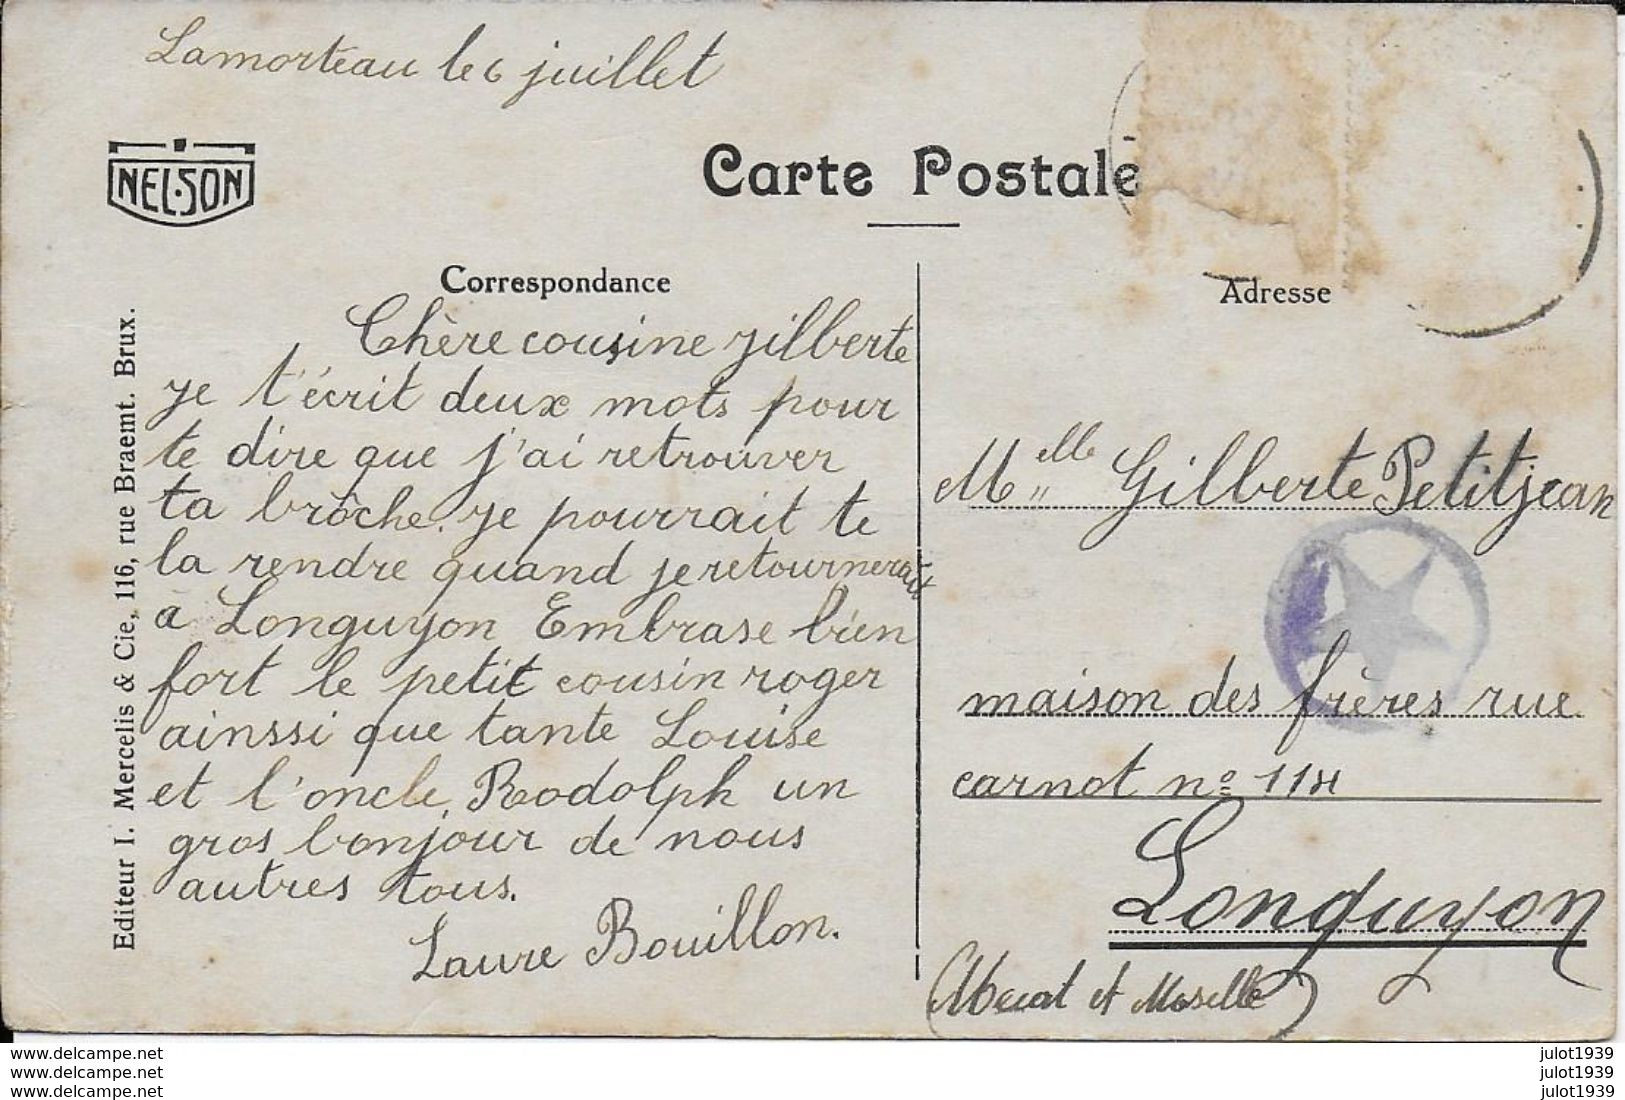 Lamorteau le 6 juillet
NELSON
Carte Postale
Correspondance
Adresse
Chère cousine gilberte
je t'écrit deux mots pour
te dire que j'ai retrouver
ta brôche. je pourrait te
la rendre quand je retournerait
à Longuyon Embrase bien
fort le petit cousin roger
ainssi que tante Louise
et l'oncle Rodolph un
gros bonjour de nous
autres tous.
Laure Bouillon.
Melle Gilberte Petitjean
maison des frères rue
carnot nº 114
Longuyon
et Moselle)
Editeur I. Mercelis & Cie, 116, rue Braemt. Brux.
www.delcampe.net
www.delcampe.net
www.delcampe.net
julot1939
julot1939
julot1939